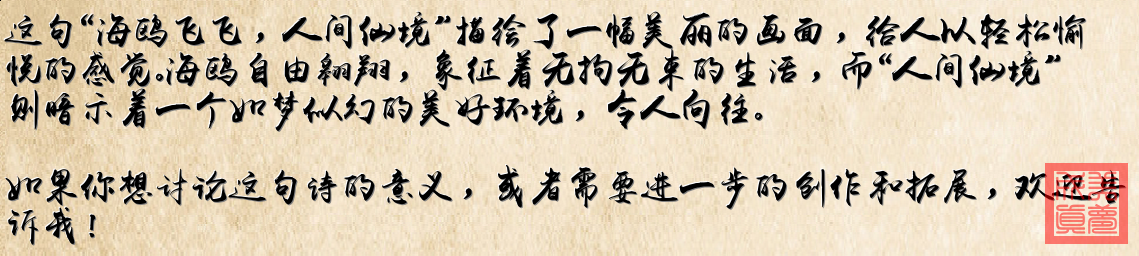 这句“海鸥飞飞，人间仙境”描绘了一幅美丽的画面，给人以轻松愉
悦的感觉。海鸥自由翱翔，象征着无拘无束的生活，而“人间仙境”
则暗示着一个如梦似幻的美好环境，令人向往。
如果你想讨论这句诗的意义，或者需要进一步的创作和拓展，欢迎告
诉我！